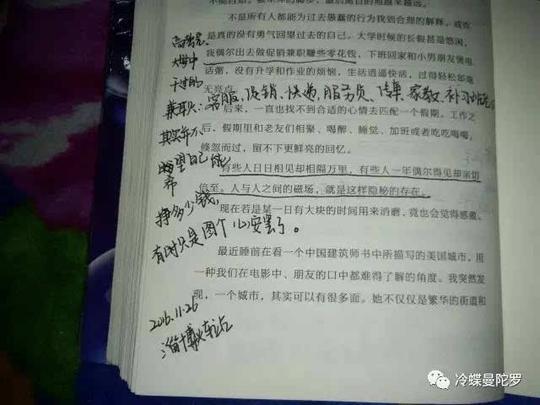 不是所有人都能为过去愚蠢的行为找到合理的解释，或许
是真的没有勇气回望过去的自己。大学时候的长假甚是悠闲，
我偶尔出去做促销兼职赚些零花钱，下班回家和小男朋友煲电
话粥，没有升学和作业的烦恼，生活逍遥快活，过得轻松却毫
无亮点。
后来，一直也找不到合适的心情去匹配一个假期。工作之
后，假期里和老友们相聚、喝醉、睡觉、加班或者吃吃喝喝，
倏忽而过，留不下更鲜亮的回忆。
有些人日日相见却相隔万里，有些人一年偶尔得见却亲切
倍至。人与人之间的磁场，就是这样隐秘的存在。
现在若是某一日有大块的时间用来消磨，竟也会觉得感激。
最近睡前在看一个中国建筑师书中所描写的美国城市，用
一种我们在电影中、朋友的口中都难得了解的角度。我突然发
现，一个城市，其实可以有很多面。她不仅仅是繁华的街道和
大学中
干过的
兼职：客服、促销、快递、服务员、传单、家教、补习班
其实并不
希望自己能
挣多少钱，
有时只是图个心安罢了。
2016.11.26
淄博火车站
冷蝶曼陀罗